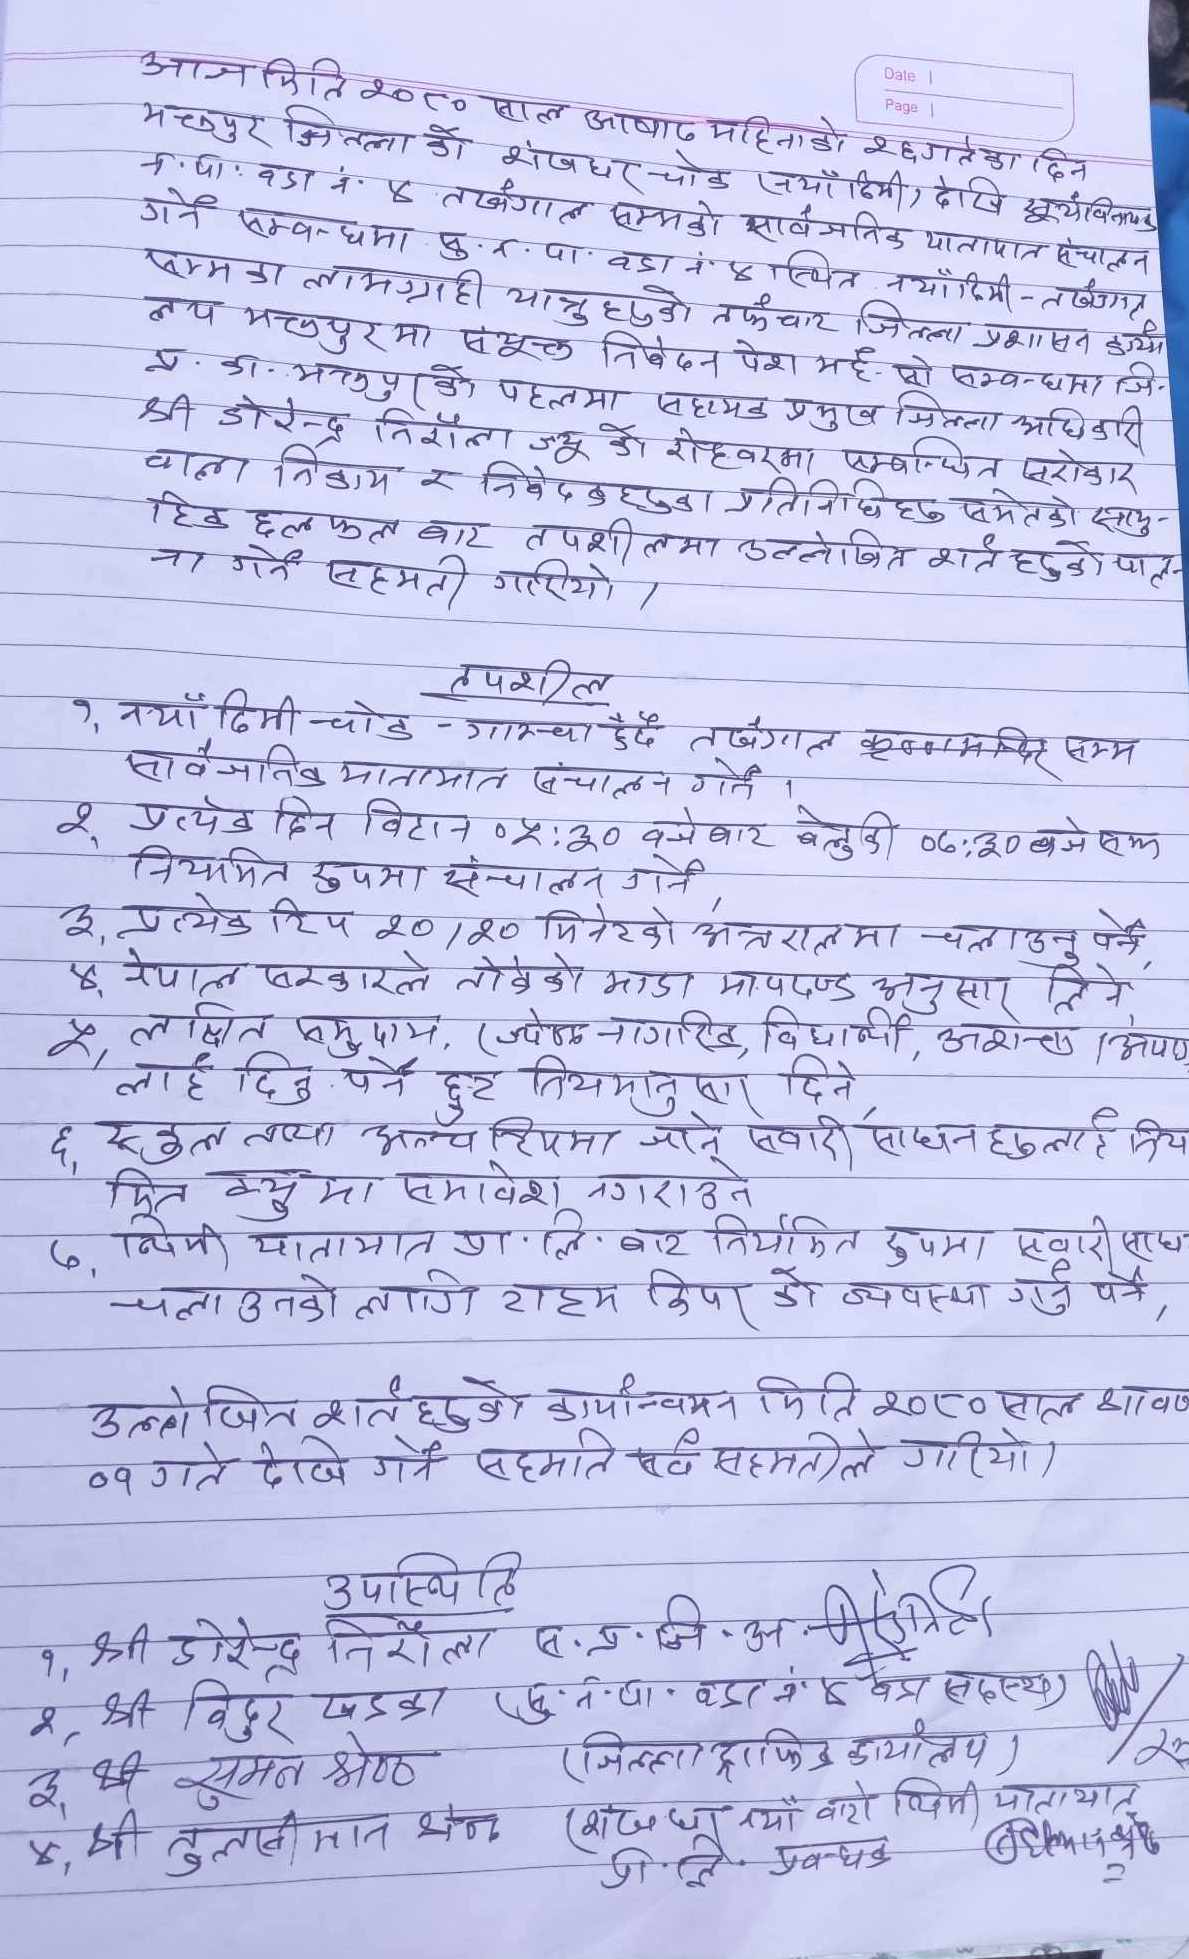 Date |
Page |
आज मिति २०८० साल आषाढ महिनाको २६ गतेका दिन
भक्तपुर जिल्ला को शंखधर चोक (नयाँ ठिमी) देखि सूर्यविनायक
न.पा. वडा नं. ४ तर्खगाल सम्मको सार्वजनिक यातायात संचालन
गर्ने सम्बन्धमा सु.न.पा. वडा नं ४ स्थित नयाँठिमी - तर्खगाल
सम्मका लाभग्राही यात्रुहरुको तर्फबाट जिल्ला प्रशासन कार्या
लय भक्तपुरमा संयुक्त निवेदन पेश भई सो सम्बन्धमा जि.
प्र. का. भक्तपुरको पहलमा सहायक प्रमुख जिल्ला अधिकारी
श्री डोरेन्द्र निरौला ज्यू को रोहवरमा सम्बन्धित सरोकार
वाला निकाय र निवेदकहरुका प्रतिनिधिहरु समेतको सामु-
हिक छलफल बाट तपशीलमा उल्लेखित शर्तहरुको पाल-
ना गर्ने सहमती गरियो ।
तपशील
१, नयाँ ठिमी चोक - गाम्चा हुँदै तर्खगाल कृष्णमन्दिर सम्म
सार्वजनिक यातायात संचालन गर्ने ।
२, प्रत्येक दिन बिहान ०५:३० बजेबाट बेलुकी ०७:३० बजे सम्म
नियमित रुपमा संचालन गर्ने,
३, प्रत्येक ट्रिप २०/२० मिनेटको अन्तरालमा चलाउनु पर्ने,
४, नेपाल सरकारले तोकेको भाडा मापदण्ड अनुसार लिने,
५, लक्षित समुदाय, (ज्येष्ठ नागरिक, विद्यार्थी, अशक्त/अपाङ्ग
लाई दिनु पर्ने छुट नियमानुसार दिने,
६, स्कुल तथा अन्य ट्रिपमा जाने सवारी साधनहरुलाई निय
मित क्यु मा समावेश नगराउने
७, थिमी यातायात प्रा. लि. बाट नियमित रुपमा सवारी साध
चलाउनको लागि टाइम किपर को व्यवस्था गर्नु पर्ने,
उल्लेखित शर्तहरुको कार्यान्वयन मिति २०८० साल श्रावण
०१ गते देखि गर्ने सहमति सर्व सहमतीले गरियो।
उपस्थिति
१, श्री डोरेन्द्र निरौला स. प्र. जि. अ.
२, श्री विदुर खडका (सु.न.पा. वडा नं. ४ वडा सदस्य)
३, श्री सुमन श्रेष्ठ (जिल्ला ट्राफिक कार्यालय)
४, श्री तुलसीमान श्रेष्ठ (शंखधर नयाँ बाटो थिमी यातायात
प्रा. लि. प्रबन्धक